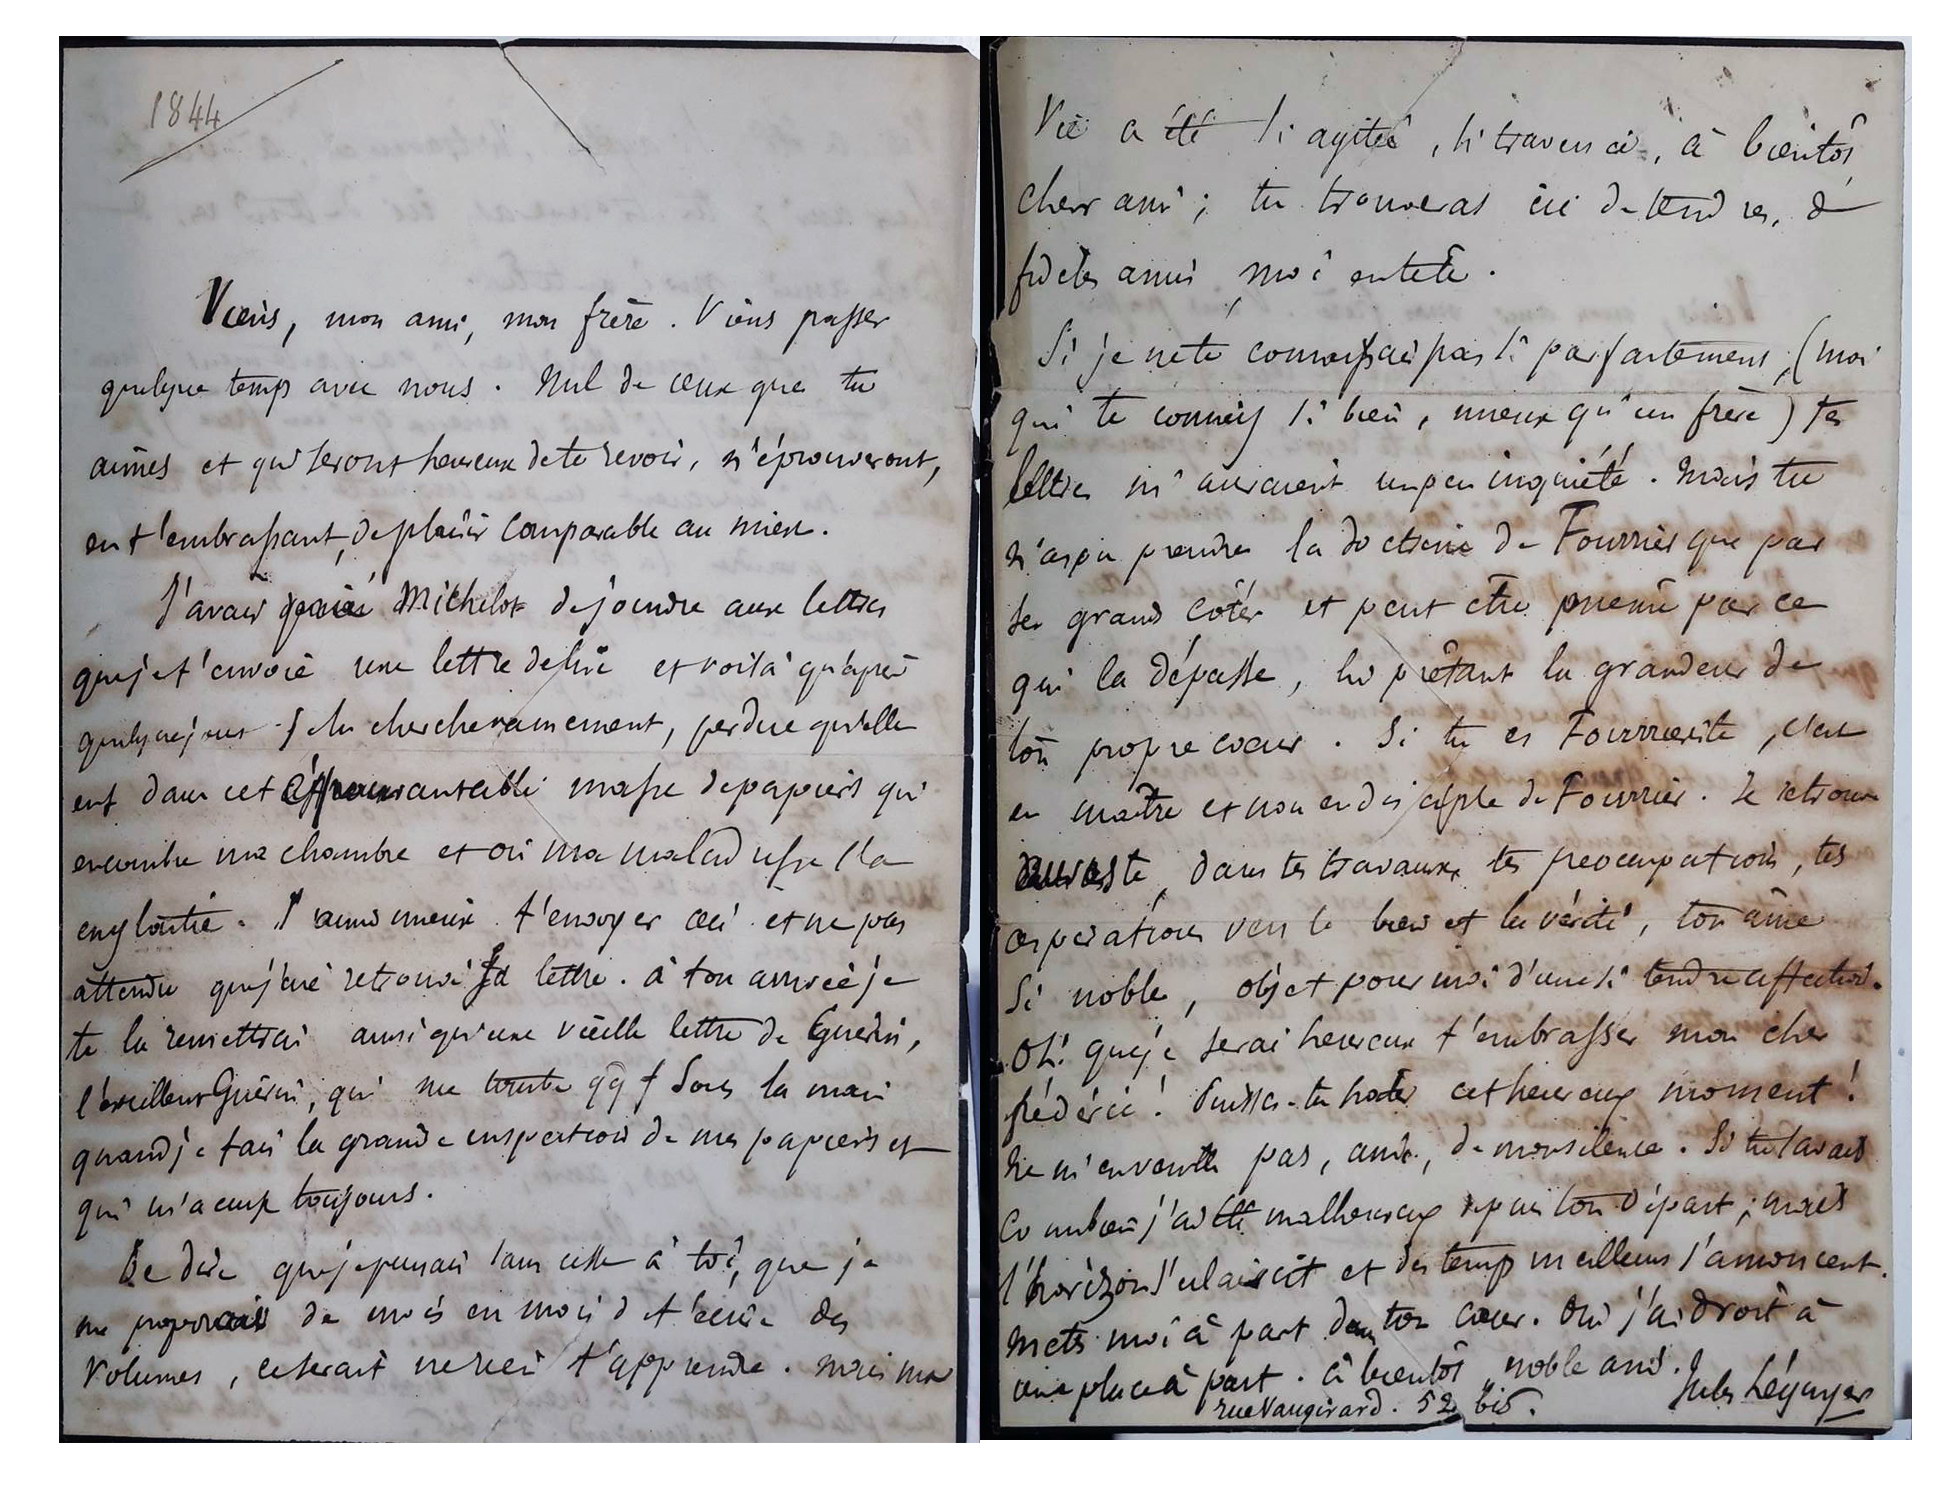 1844
Viens, mon ami, mon frère. Viens passer
quelque temps avec nous. Nul de ceux que tu
aimes et qui seront heureux de te revoir, n'éprouveront,
en t'embrassant, de plaisir comparable au mien.
J'avais prié Michelot de joindre aux lettres
que je t'envoie une lettre de lui et voilà qu'après
quelques jours je la cherche vainement, perdue qu'elle
est dans cet épouvantable masse de papiers qui
encombre ma chambre et où ma maladresse l'a
engloutie. J'aime mieux t'envoyer ceci et ne pas
attendre que j'aie retrouvé sa lettre. à ton arrivée je
te la remettrai ainsi qu'une vieille lettre de Guérin,
l'excellent Guérin, qui me tombe qqf sous la main
quand je fais la grande inspection de mes papiers et
qui m'a ému toujours.
Te dire que je pensais sans cesse à toi, que je
me proposais de mois en mois de t'écrire des
volumes, ce serait ne rien t'apprendre. Mais ma
Vie a été si agitée, si traversée, à bientôt,
cher ami; tu trouveras ici de tendres, de
fidèles amis, moi en tête.
Si je ne te connaissais pas si parfaitement, (moi
qui te connais si bien, mieux qu'un frère) tes
lettres m'auraient un peu inquiété. Mais tu
n'as pu prendre la doctrine de Fourrier que par
ses grands côtés et peut être même par ce
qui la dépasse, lui prêtant la grandeur de
ton propre coeur. Si tu es Fourrieriste, c'est
en maître et non en disciple de Fourrier. Je retrouve
du reste, dans tes travaux, tes préocupations, tes
aspirations vers le bien et la vérité, ton âme
si noble, objet pour moi d'une si tendre affection.
Oh! que je serai heureux t'embrasser mon cher
frédéric! Puisses-tu hater cet heureux moment!
Ne m'en veuille pas, ami, de mon silence. Si tu savais
Combien j'ai été malheureux depuis ton départ; mais
l'horizon s'eclaircit et des temps meilleurs s'annoncent.
Mets moi à part dans ton coeur. Oui j'ai droit à
une place à part. à bientôt, noble ami. Jules
rue Vaugirard. 52 bis.